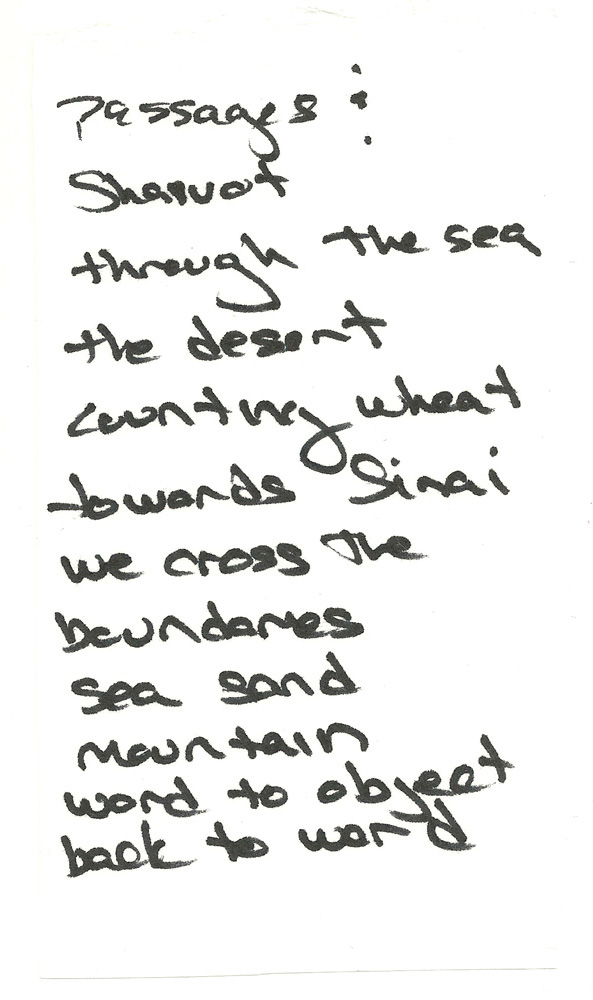 Passages:
Shavuot
through the sea
the desert
counting wheat
towards Sinai
we cross the
boundaries
sea sand
mountain
word to object
back to word